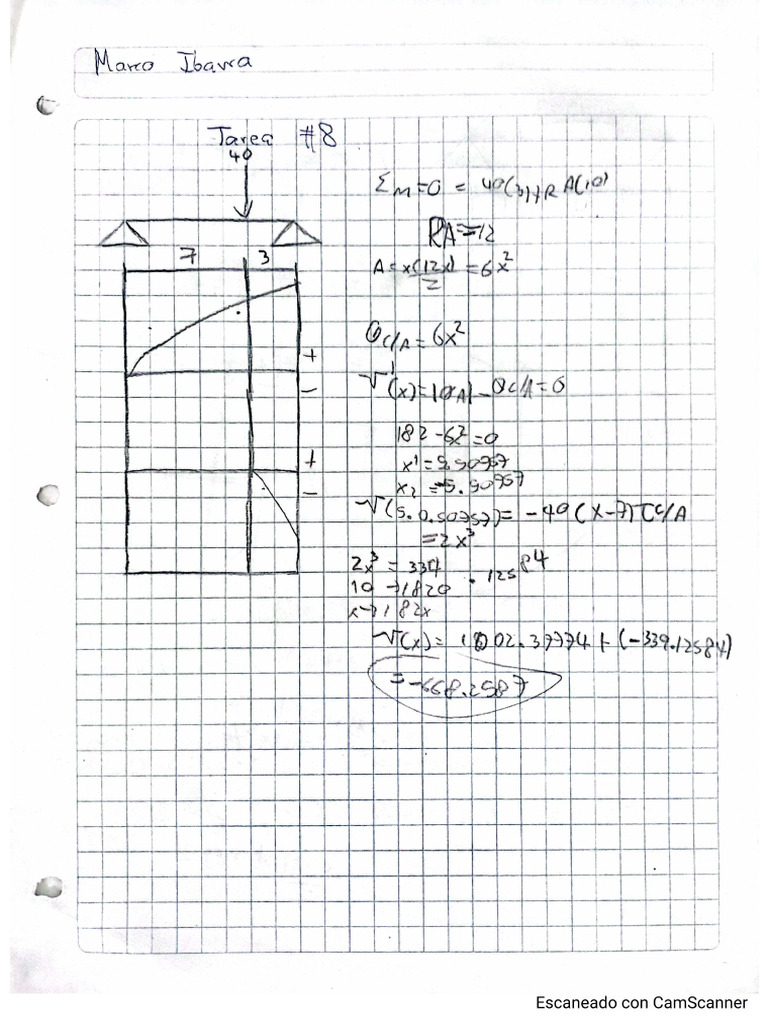 Marco Ibarra
Tarea #8
40
7 3
ΣM=0 = 40(3)+RA(10)
RA=12
A= x(12x)/2 =6x²
θC/A= 6x²
V'(x)=|θA|-θC/A=0
182-6x²=0
x¹=5.50757
x₂=-5.50757
V(5.0.50757)= -40(x-7)TC/A
=2x³
2x³=334
.12584
10→1820
x→182x
V(x)= 1002.37774+(-339.12584)
=-668.2587
+
-
+
-
Escaneado con CamScanner